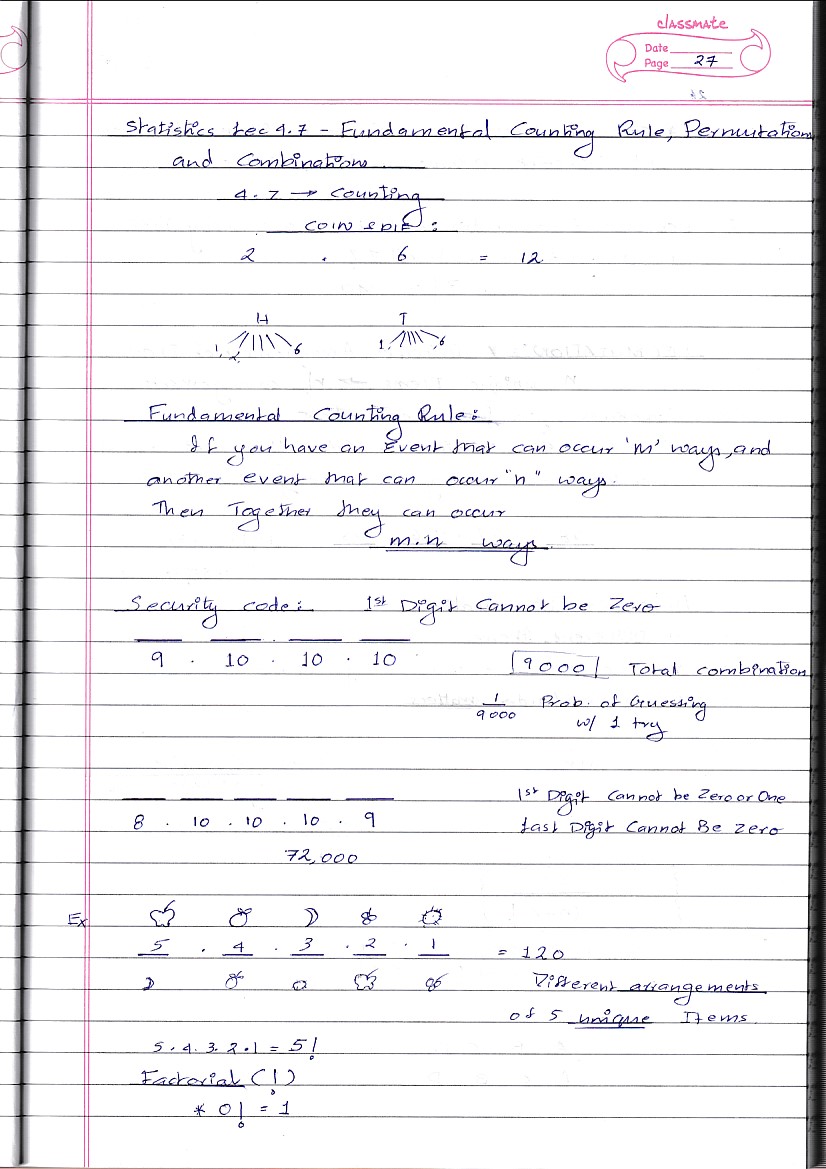 classmate
Date
Page 27
Statistics Lec 4.7 - Fundamental Counting Rule, Permutation
and Combination
4.7 → Counting
COIN & DIE:
2 . 6 = 12
H T
1, 2, 6 1, 6
Fundamental Counting Rule:
If you have an Event that can occur 'm' ways, and
another event that can occur "n" ways.
Then Together they can occur
m.n ways.
Security code: 1st Digit Cannot be Zero
9 . 10 . 10 . 10 9000 Total combination
1/9000 Prob. of Guessing
w/ 1 try
1st Digit Cannot be Zero or One
8 . 10 . 10 . 10 . 9 Last Digit Cannot Be Zero
72,000
Ex
5 . 4 . 3 . 2 . 1 = 120
Different arrangements
of 5 unique Items.
5.4.3.2.1 = 5!
Factorial (!)
* 0! = 1